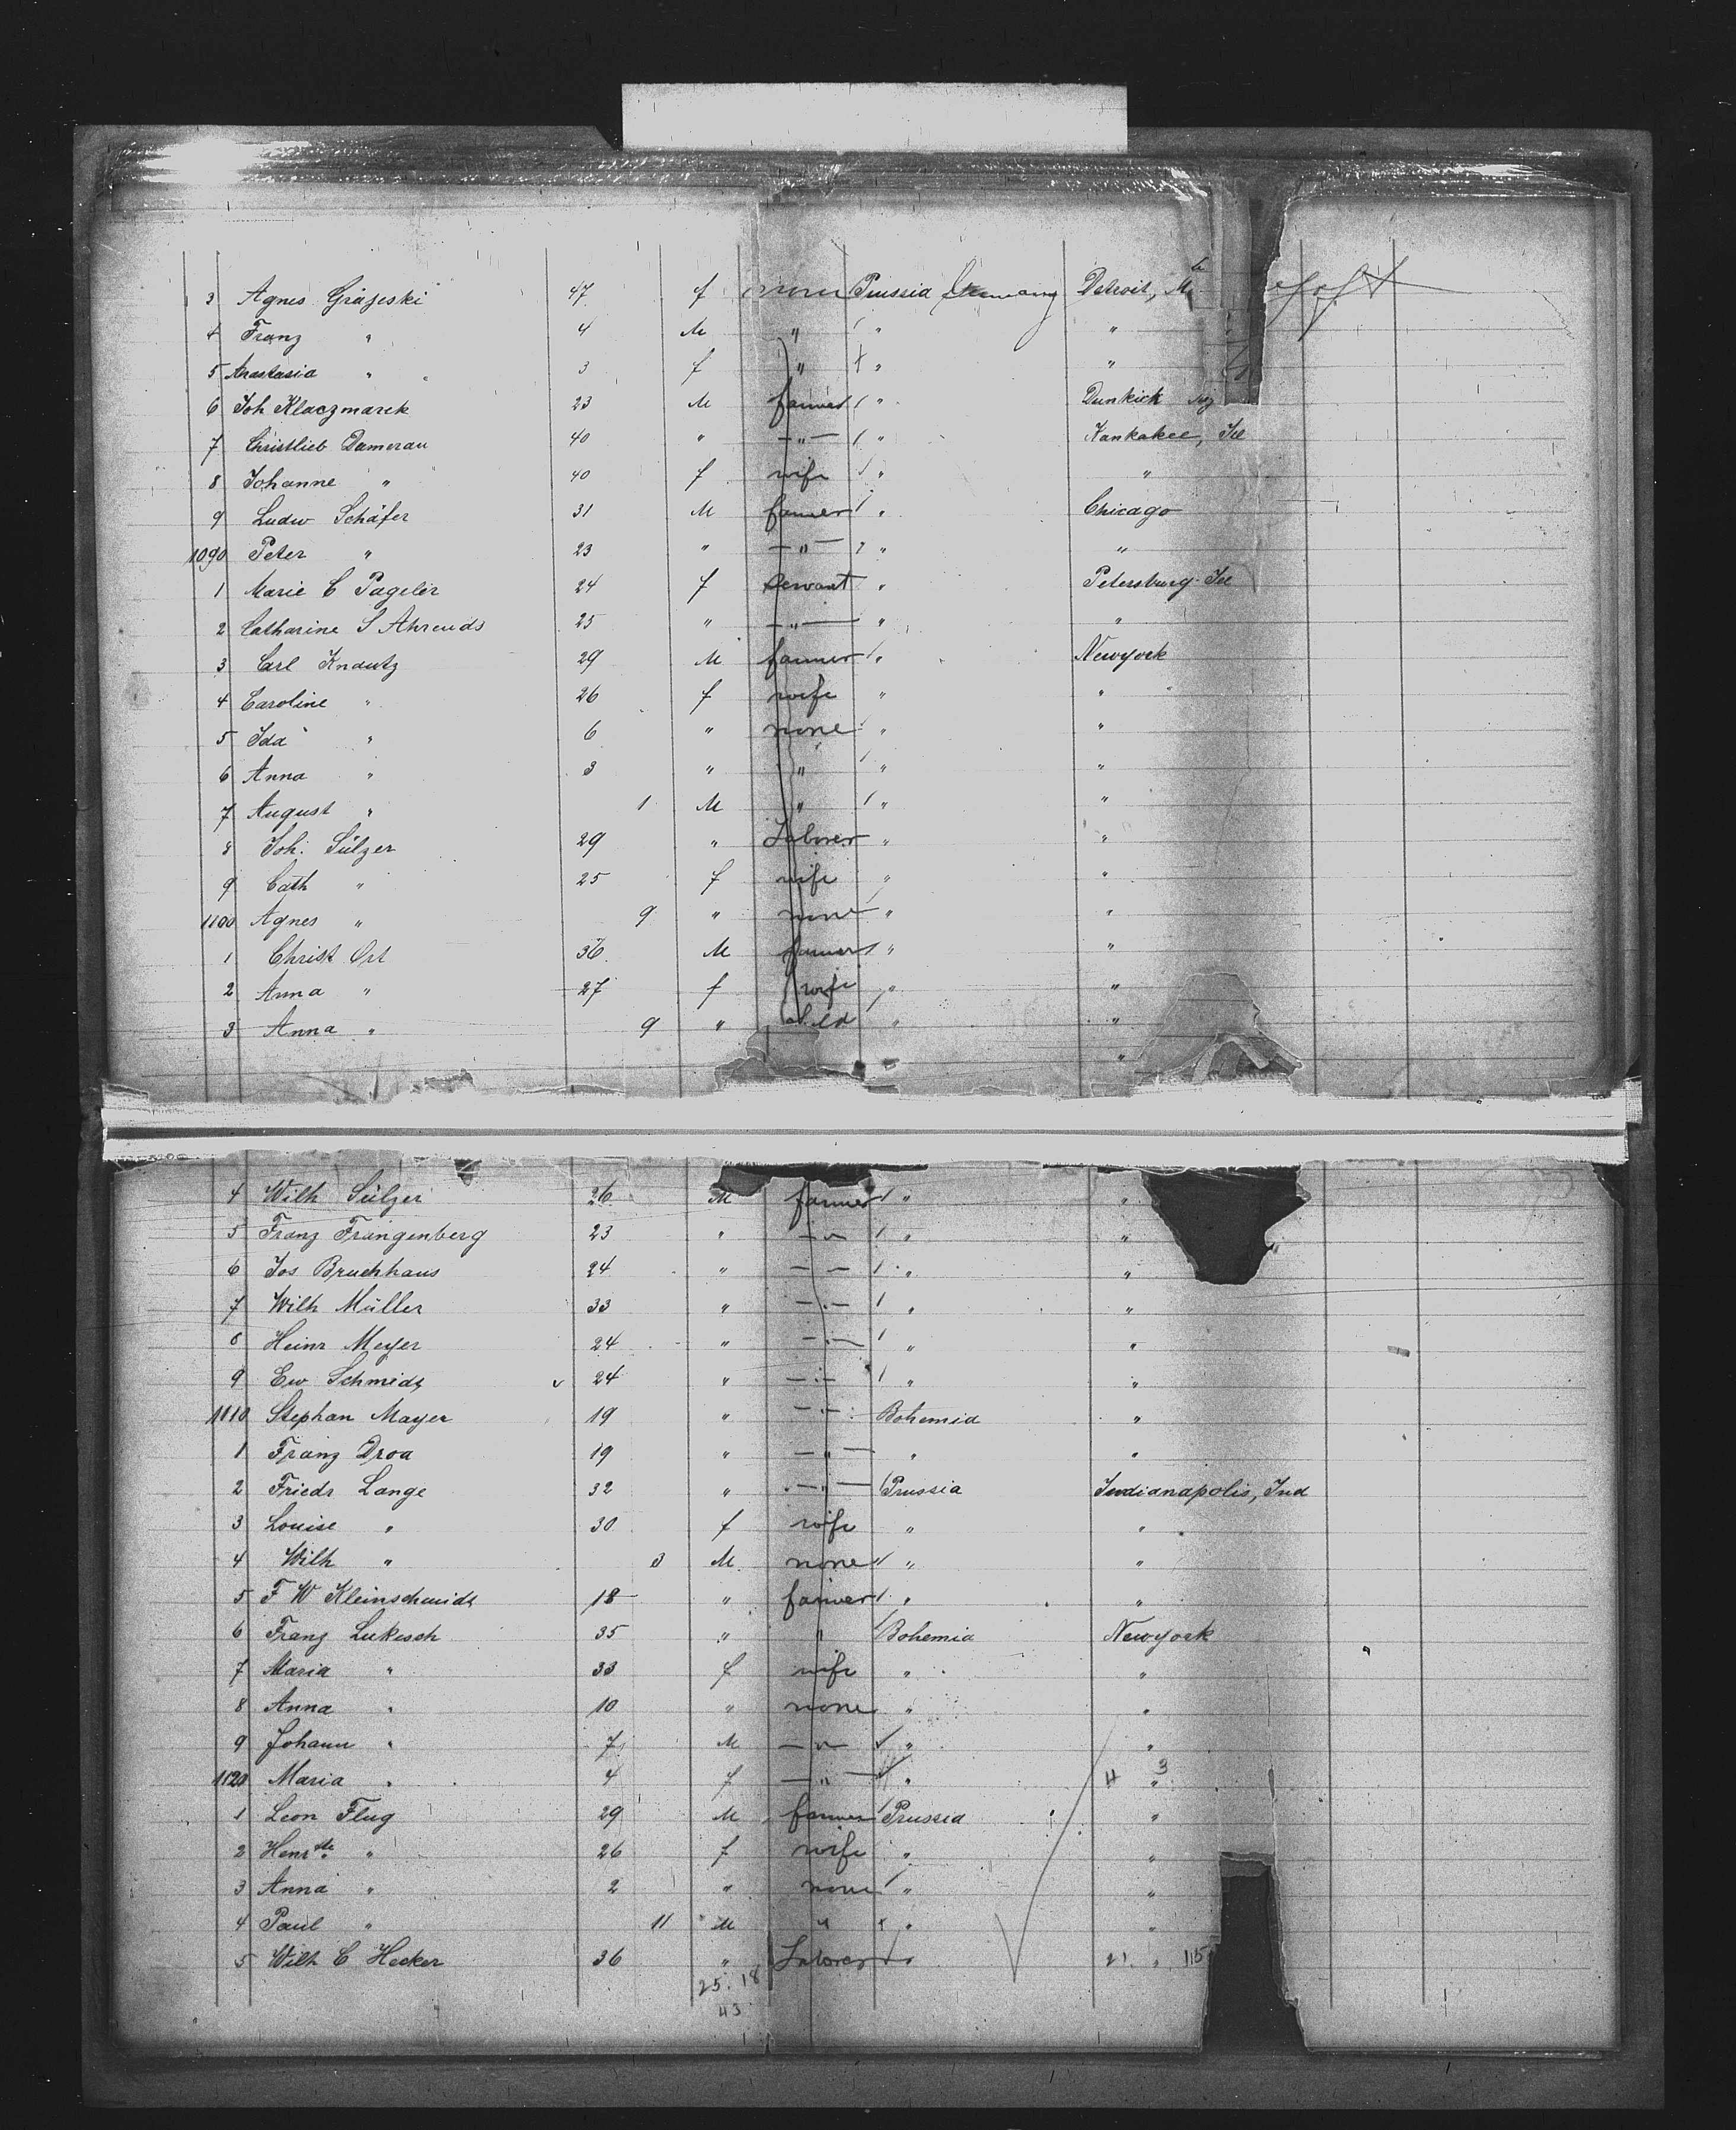 3 Agnes Grajeski 47 f none Prussia Germany Detroit, Mi
4 Franz " 4 M " " "
5 Anastasia " 3 f " " "
6 Joh Klaczmarek 23 M farmer " Dunkirk
7 Christlieb Damerau 40 " — " — " Kankakee, Ill
8 Johanne " 40 f wife " "
9 Ludw Schäfer 31 M farmer " Chicago
1090 Peter " 23 " — " — " "
1 Marie C Pageler 24 f Servant " Petersburg Ill
2 Catharine S Ahrends 25 " — " — " "
3 Carl Knautz 29 M farmer " Newyork
4 Caroline " 26 f wife " "
5 Ida " 6 " none " "
6 Anna " 3 " " " "
7 August " 1 M " " "
8 Joh. Sülzer 29 " Laborer " "
9 Cath " 25 f wife " "
1100 Agnes " 9 " none " "
1 Christ Ort 36 M farmer " "
2 Anna " 27 f wife " "
3 Anna " 9 " child " "
"
4 Wilh Sülzer 26 M farmer " "
5 Franz Frangenberg 23 " — " — " "
6 Jos Bruchhaus 24 " — " — " "
7 Wilh Müller 33 " — " — " "
8 Heinr Meyer 24 " — " — " "
9 Ew Schmidt 24 " — " — " "
1110 Stephan Mayer 19 " — " — Bohemia "
1 Franz Droa 19 " — " — " "
2 Friedr Lange 32 " — " — Prussia Indianapolis, Ind
3 Louise " 30 f wife " "
4 Wilh " 3 M none " "
5 F W Kleinschmidt 18 " farmer " "
6 Franz Lukesch 35 " " Bohemia Newyork
7 Maria " 33 f wife " "
8 Anna " 10 " none " "
9 Johann " 7 M — " — " "
1120 Maria " 4 f — " — " "
1 Leon Flug 29 M farmer Prussia "
2 Henrtte " 26 f wife " "
3 Anna " 2 " none " "
4 Paul " 11 M " " "
5 Wilh C Hecker 36 " Laborer " " 115
25. 18
43